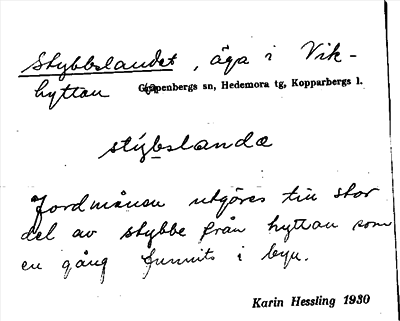 Stybbslandet, äga i Vik-
hyttan Garpenbergs sn, Hedemora tg, Kopparbergs l.
stybslanda
Jordmånen utgöres till stor
del av stybbe från hyttan som
en gång funnits i byn.
Karin Hessling 1930